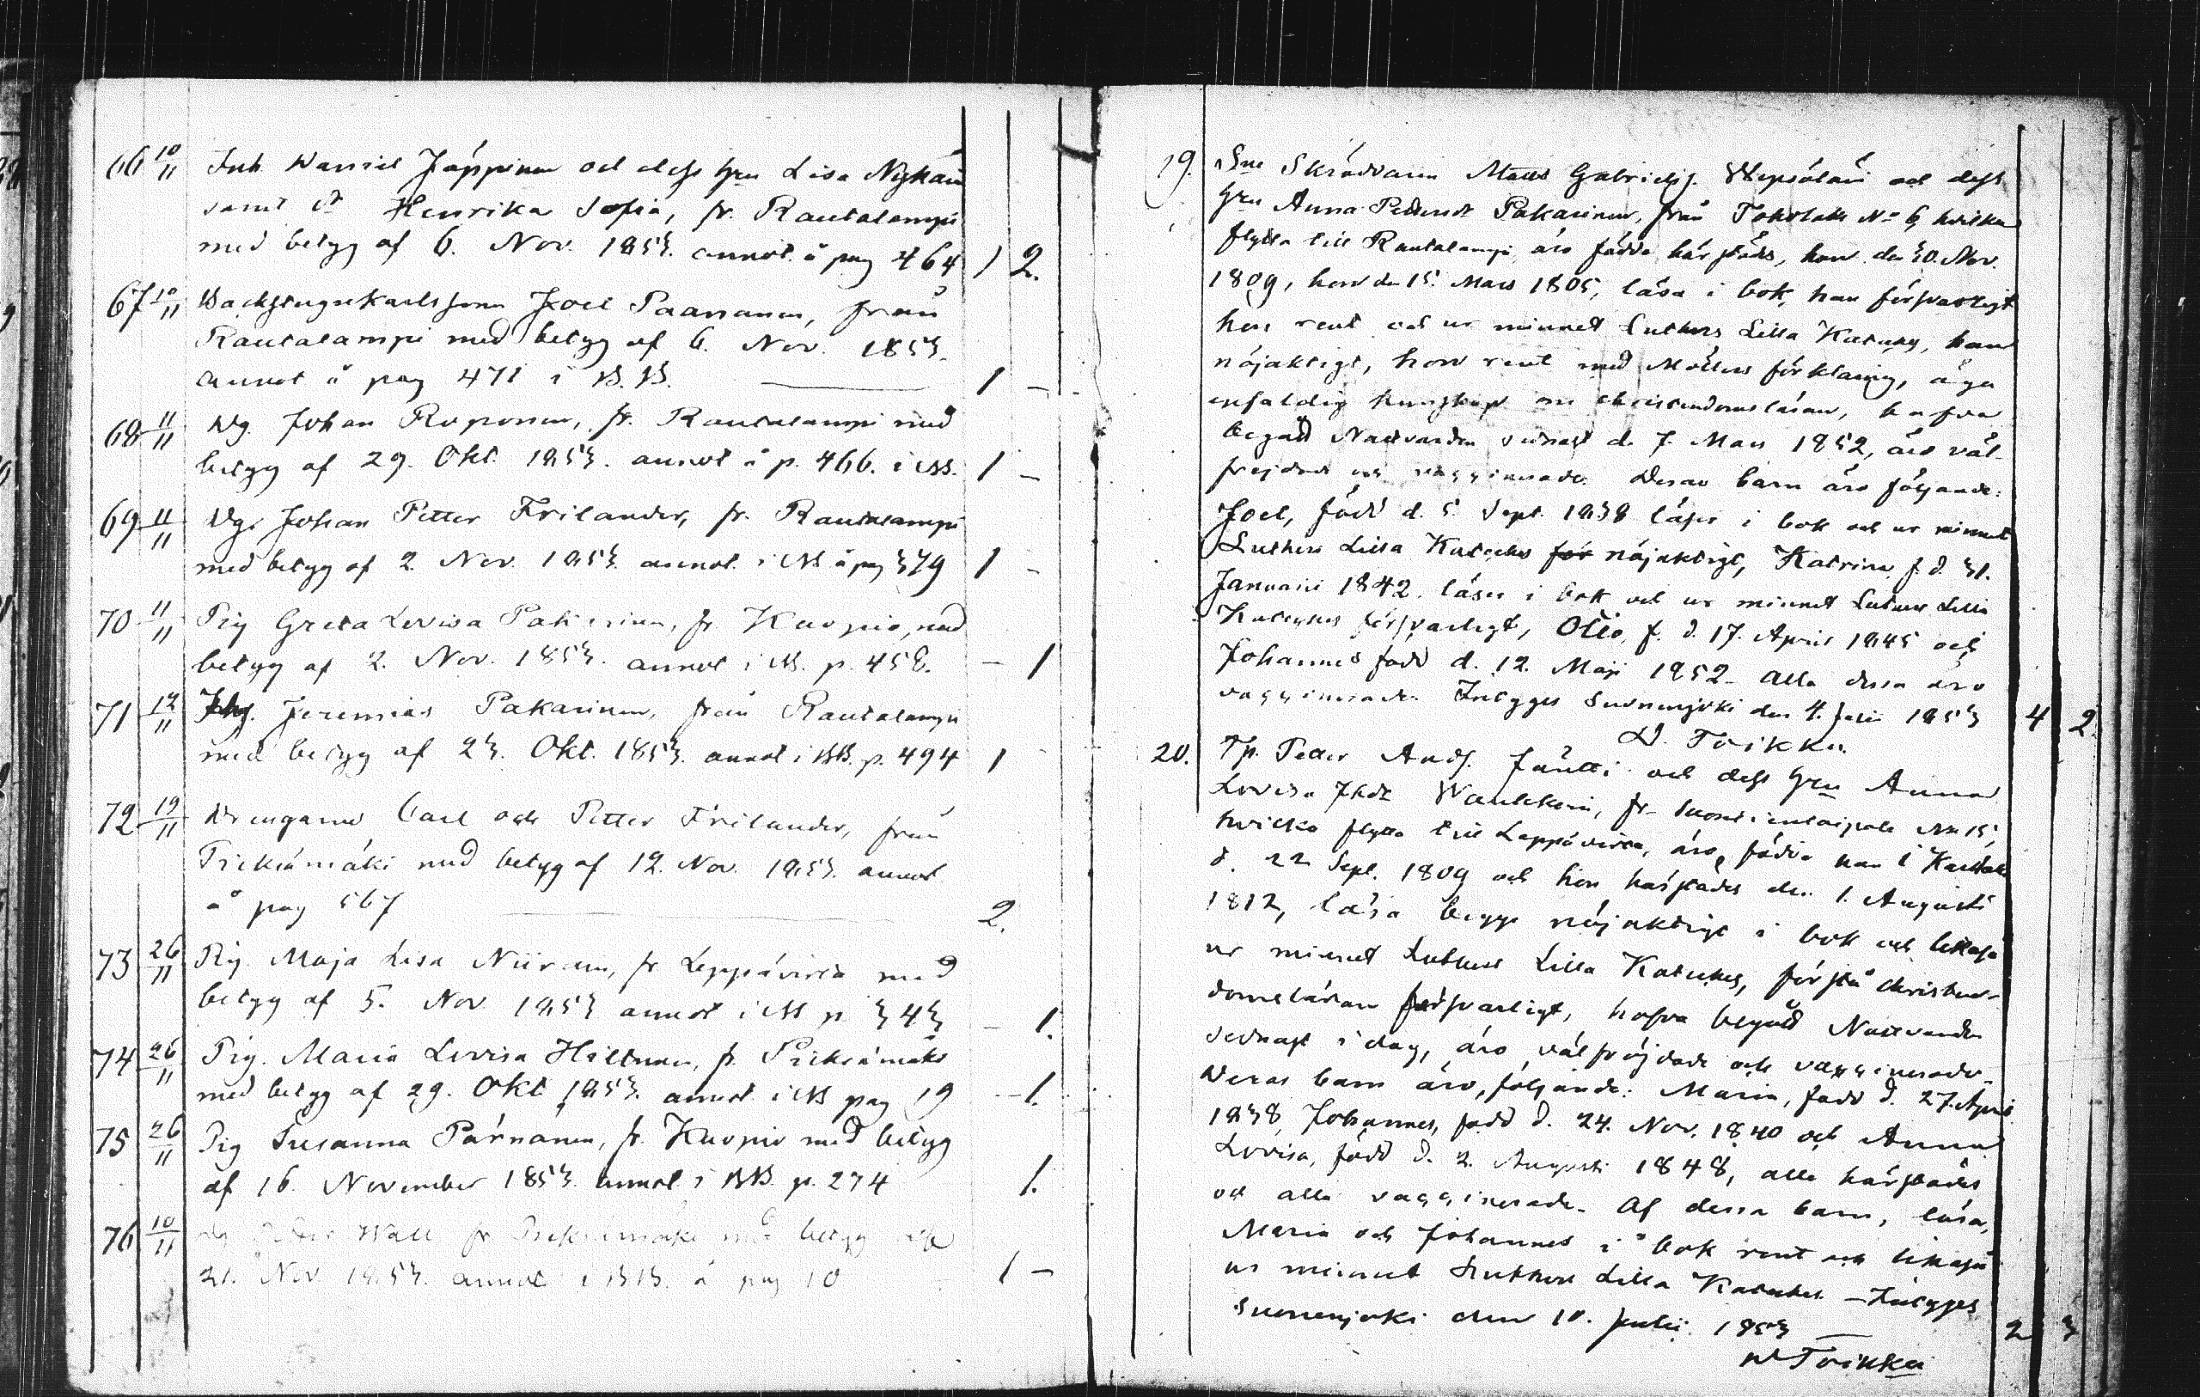 66 10/11 Inh. Daniel Jäppinen och dess hu Lisa Nykän
samt dr Henrika Sofia, fr. Rautalampi
med betyg af 6. Nov. 1853. annot. å pag 464 1 2.
67 10/11 Backstugukarls sonen Joel Paananen, från
Rautalampi med betyg af 6. Nov. 1853.
annot å pag 471 i BB. 1 -
68 11/11 Dg. Johan Ruponen, fr. Rautalampi med
betyg af 29. Okt. 1853. annot å p. 466. i BB. 1 -
69 11/11 Dgr Johan Petter Frilander, fr. Rautalampi
med betyg af 2 Nov. 1853. annot. i BB å pag 379 1 -
70 11/11 Pig Greta Lovisa Pakarinen, fr. Kuopio, med
betyg af 2. Nov. 1853. annot i BB. p. 458. - 1
71 12/11 Jeremias Pakarinen, från Rautalampi
med betyg af 23. Okt. 1853. annot i BB. p. 494 1
72 19/11 Drengarne Carl och Petter Frilander, från
Pieksämäki med betyg af 12. Nov. 1853. annot
å pag 567 2.
73 26/11 Pig. Maja Lisa Niiranen, fr Leppävirta med
betyg af 5. Nov 1853 annot i BB p 343 - 1.
74 26/11 Pig. Maria Lovisa Hiltunen, fr. Pieksämäki
med betyg af 29. Okt 1853. annot. i BB pag 19 - 1.
75 26/11 Pig Susanna Pärnänen, fr. Kuopio med betyg
af 16. November 1853. annot i BB. p. 274 1.
76 10/11 Dg Wall fr Pieksämäki med betyg af
21. Nov 1853. annot i BB. å pag 10 1 -
19. Sne Skräddaren Matts Gabrielss. Wepsäläin och dess
hu Anna Pedersdr Pakarinen, från Toholaks No 6 hvilka
flytta till Rautalampi äro födde härstädes, han den 30. Nov.
1809, hon den 15. Mars 1805, läsa i bok, han försvarligt
hon rent och ur minnet Luthers Lilla Kateches, han
nöjaktigt, hon rent med Möllers förklaring, äga
enfaldig kunskap om christendomsläran, hafva
begått Nattvarden sednast d. 7. Mars 1852, äro väl-
frejdade och vaccinerade. Deras barn äro följande:
Joel, född d. 5 Sept. 1838 läser i bok och ur minnet
Luthers Lilla Kateches för nöjaktigt, Katrina f. d. 31.
Januarii 1842. läser i bok och ur minnet Luthers Lilla
Kateches försvarligt, Otto, f. d. 17. April 1845 och
Johannes född d. 12. Maji 1852. Alla dessa äro
vaccinerade. Intygges Suonnejoki den 4. Julii 1853 4 2.
D. Toikka.
20. Tp. Peter Andj. Jäntti och dess hu Anna
Lovisa Jhdr Wauhkoin, fr. Suontientaipale No 15,
hvilka flytta till Leppävirta, äro födde han i Karttula
d. 22 Sept. 1809 och hon härstädes den 1. Augusti
1812, läsa begge nöjaktigt i bok och likaså
ur minnet Luthers Lilla Kateches, förstå christen-
domsläran försvarligt, hafva begått Nattvarden
sednast i dag, äro välfrejdade och vaccinerade.
Deras barn äro, följande: Maria, född d. 27. April
1838, Johannes, född d. 24. Nov. 1840 och Anna
Lovisa, född d. 2. Augusti 1848, alla härstädes
och alla vaccinerade. Af dessa barn, läsa,
Maria och Johannes i bok rent och likaså
ur minnet Luthers Lilla Kateches — Intygges
Suonnejoki den 10. Julii. 1853 2 3
D Toikka